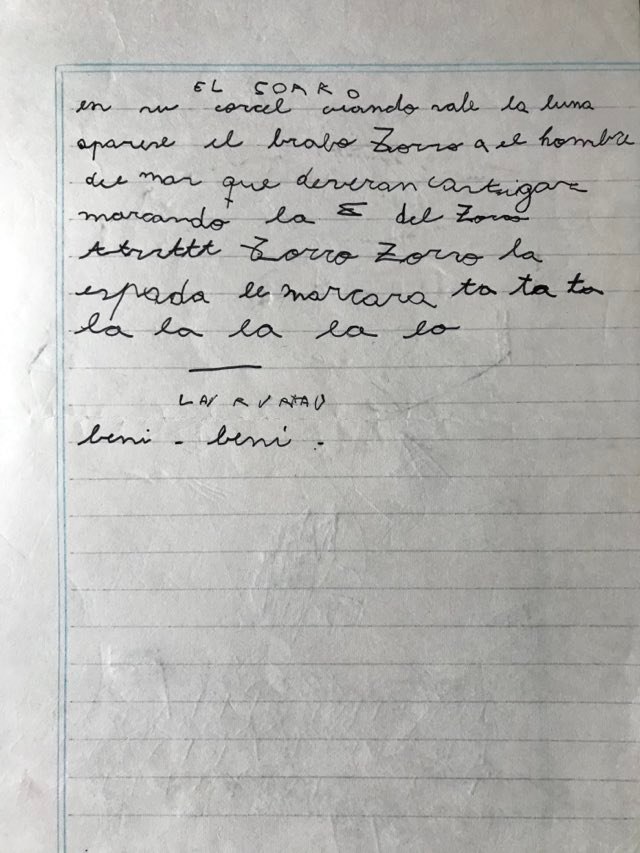 EL SOARO
en su corcel cuando sale la luna
aparese el brabo Zorro a el hombre
del mar que deveran castigar
marcando la Σ del Zorro
Zorro Zorro la
espada le marcara ta ta ta
la la la la lo
beni - beni -